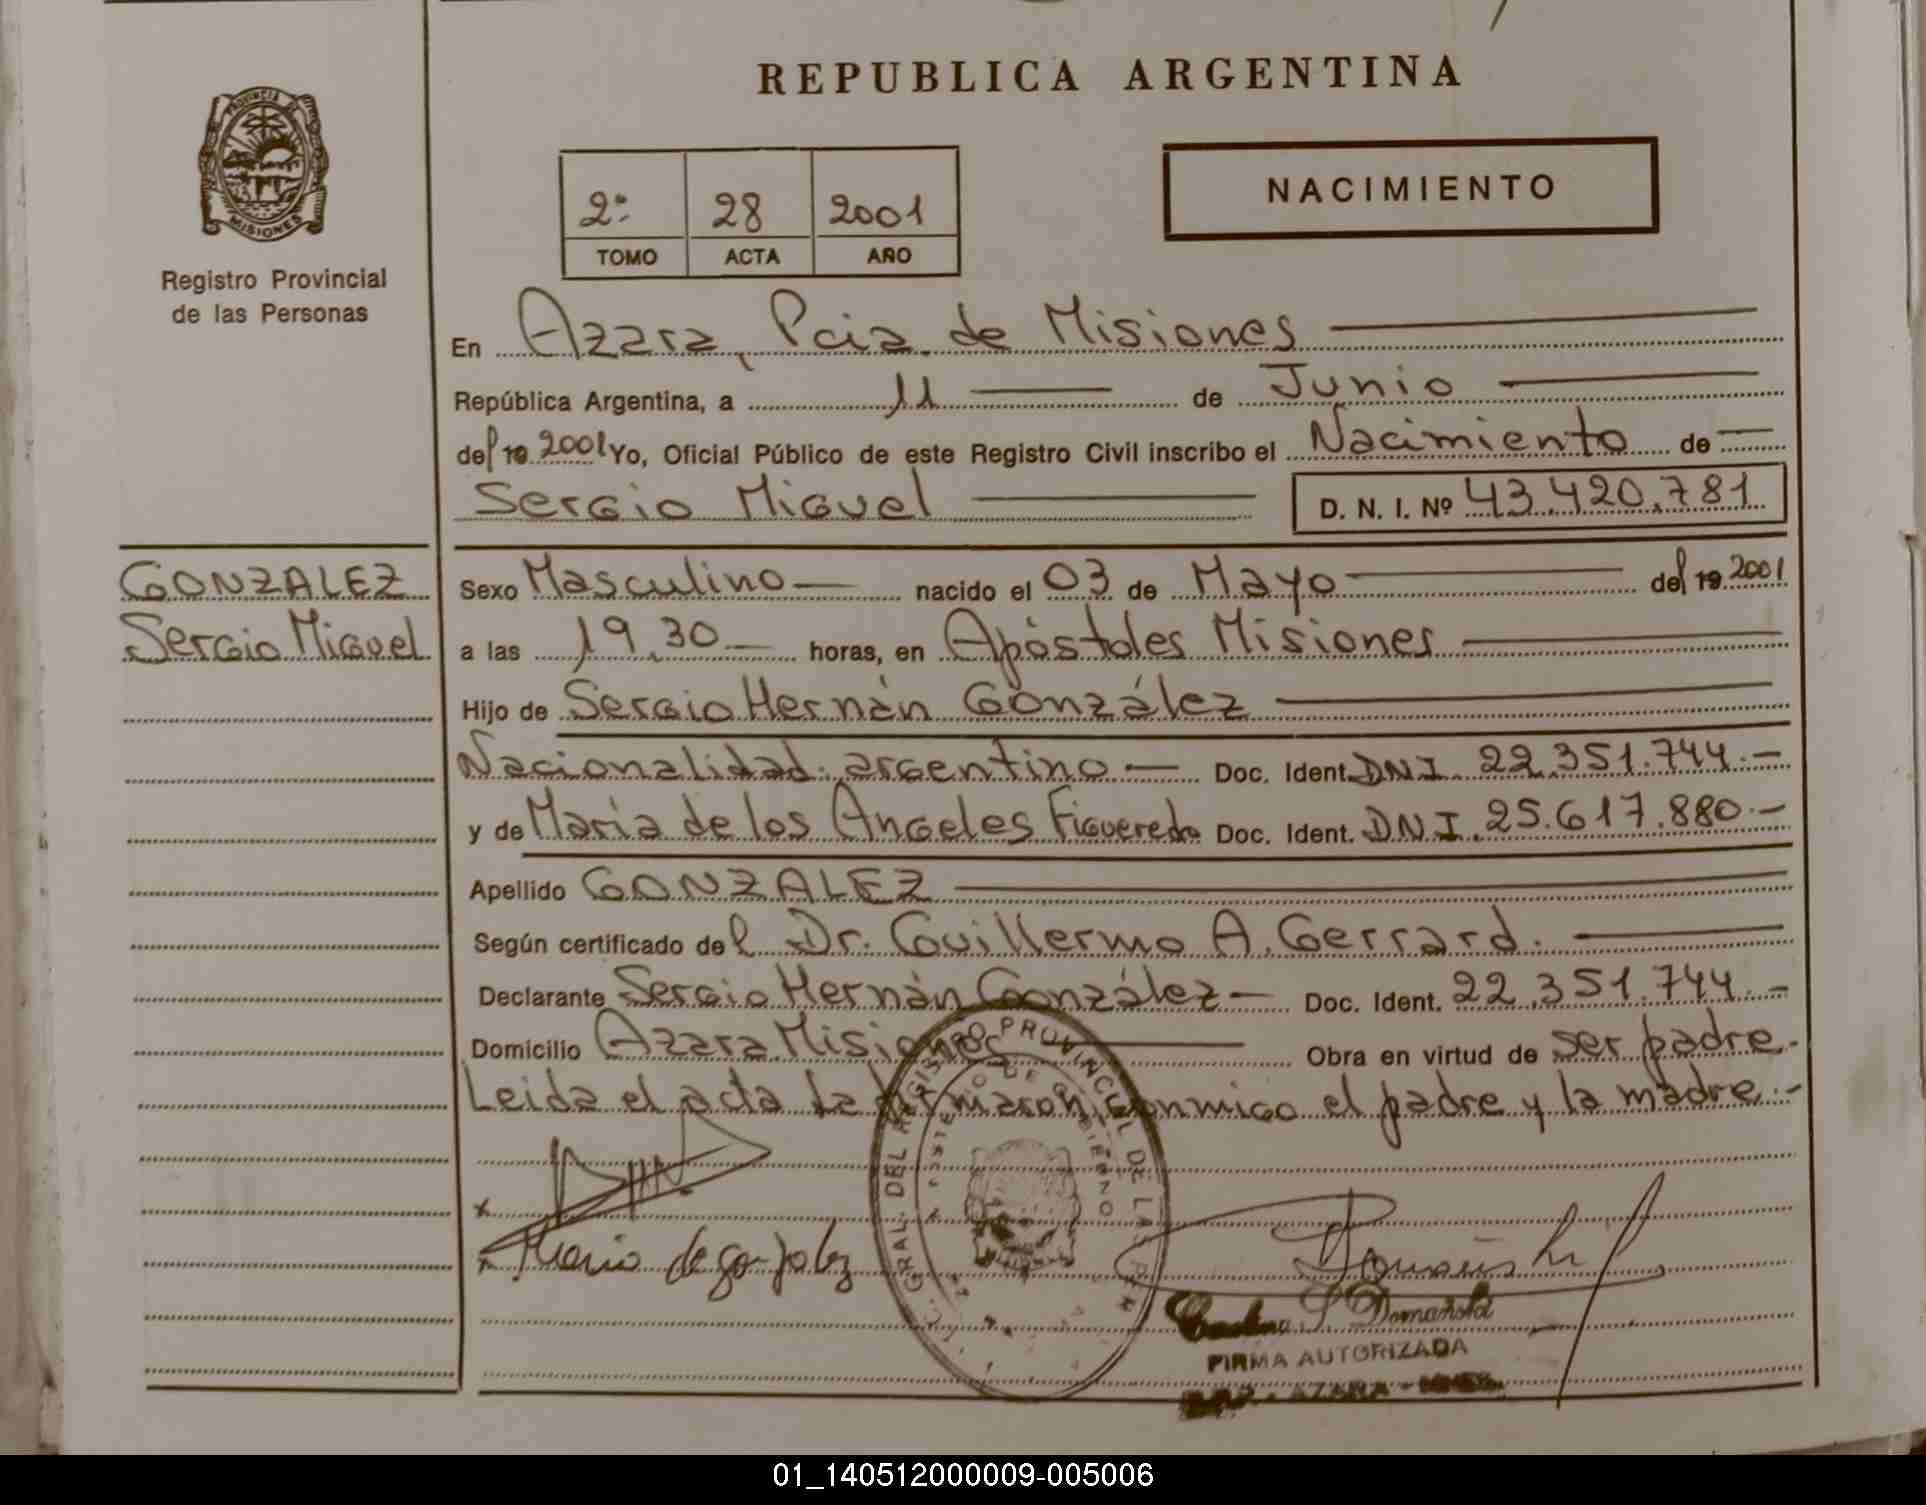 REPUBLICA ARGENTINA
PROVINCIA DE
MISIONES
Registro Provincial
de las Personas
2º 28 2001
TOMO ACTA AÑO
NACIMIENTO
En Azara, Pcia. de Misiones
República Argentina, a 11 de Junio
del 19 2001 Yo, Oficial Público de este Registro Civil inscribo el Nacimiento de
Sergio Miguel D. N. I. Nº 43.420.781
GONZALEZ
Sergio Miguel
Sexo Masculino nacido el 03 de Mayo del 19 2001
a las 19,30 horas, en Apóstoles Misiones
Hijo de Sergio Hernán González
Nacionalidad argentino Doc. Ident. DNI. 22.351.744.-
y de María de los Angeles Figueredo Doc. Ident. D.N.I. 25.617.880.-
Apellido GONZALEZ
Según certificado del Dr. Guillermo A. Gerrard.
Declarante Sergio Hernán González Doc. Ident. 22.351.744.-
Domicilio Azara Misiones Obra en virtud de ser padre.
Leida el acta la firmaron conmigo el padre y la madre.-
GRAL. DEL REGISTRO PROVINCIAL DE LAS PER
MINISTERIO DE GOBIERNO
x
x Maria de gonzalez
S. Domañski
FIRMA AUTORIZADA
AZARA
01_140512000009-005006